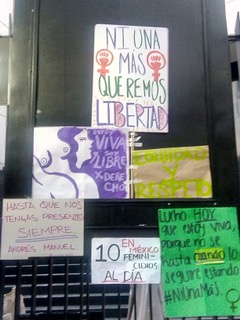 NI UNA
MÁS
QUEREMOS
LIBERTAD
ESTOY
VIVA
SOY
LIBRE
X DERE
CHO
EQUIDAD
Y
RESPETO
HASTA QUE NOS
TENGAS PRESENTES
SIEMPRE.
ANDRÉS MANUEL
10 EN MÉXICO
FEMINI-
CIDIOS
AL DÍA
Lucho HOY
que estoy viva,
porque no se
hasta cuando
seguiré estando
#NiUnaMás.